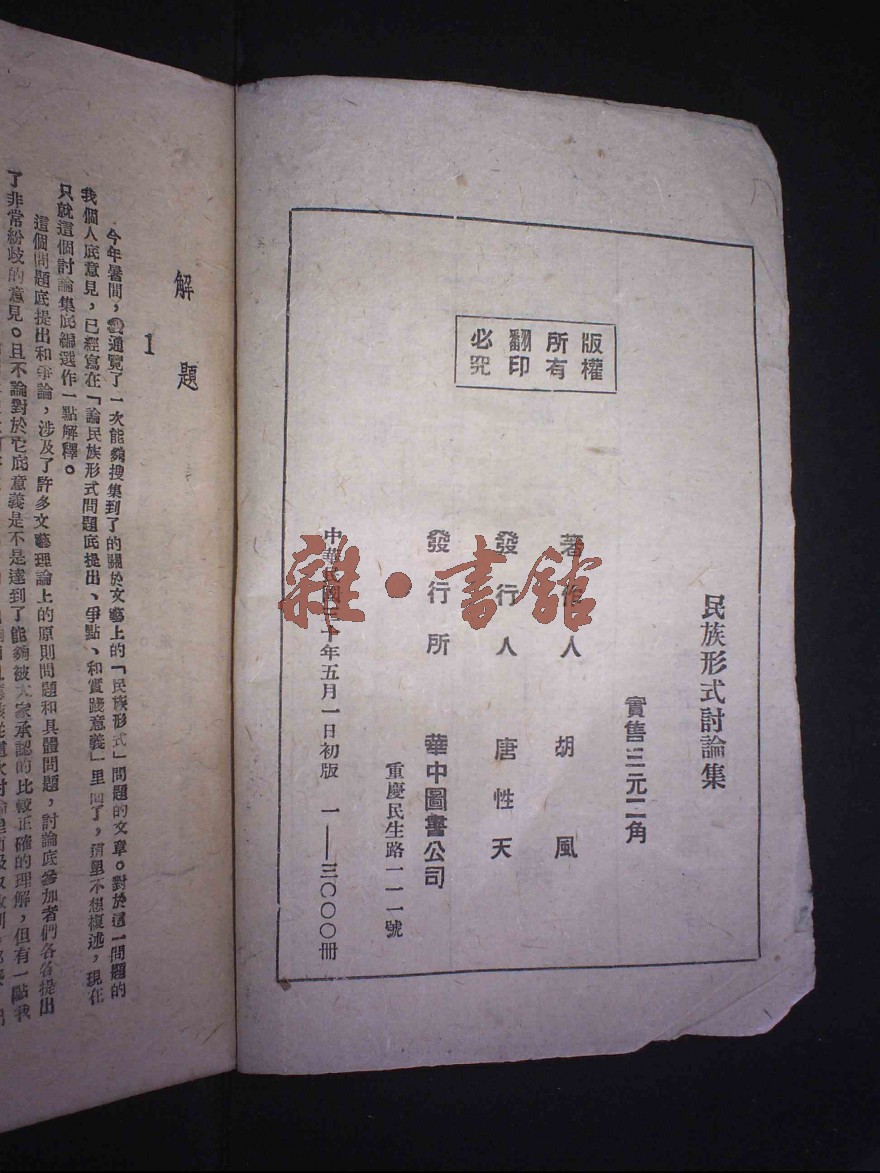 版權
所有
翻印
必究
民族形式討論集
實售三元二角
著作人 胡風
發行人 唐性天
發行所 華中圖書公司
重慶民生路一一一號
中華民國三十年五月一日初版 一——三〇〇〇冊
雜·書館
解題
1
今年暑間,我通覽了一次能夠搜集到了的關於文藝上的「民族形式」問題的文章。對於這一問題的
我個人底意見,已經寫在「論民族形式問題底提出、爭點、和實踐意義」里面了,這里不想複述,現在
只就這個討論集底編選作一點解釋。
這個問題底提出和爭論,涉及了許多文藝理論上的原則問題和具體問題,討論底參加者們各各提出
了非常紛歧的意見。且不論對於它底意義是不是達到了能夠被大家承認的比較正確的理解,但有一點我